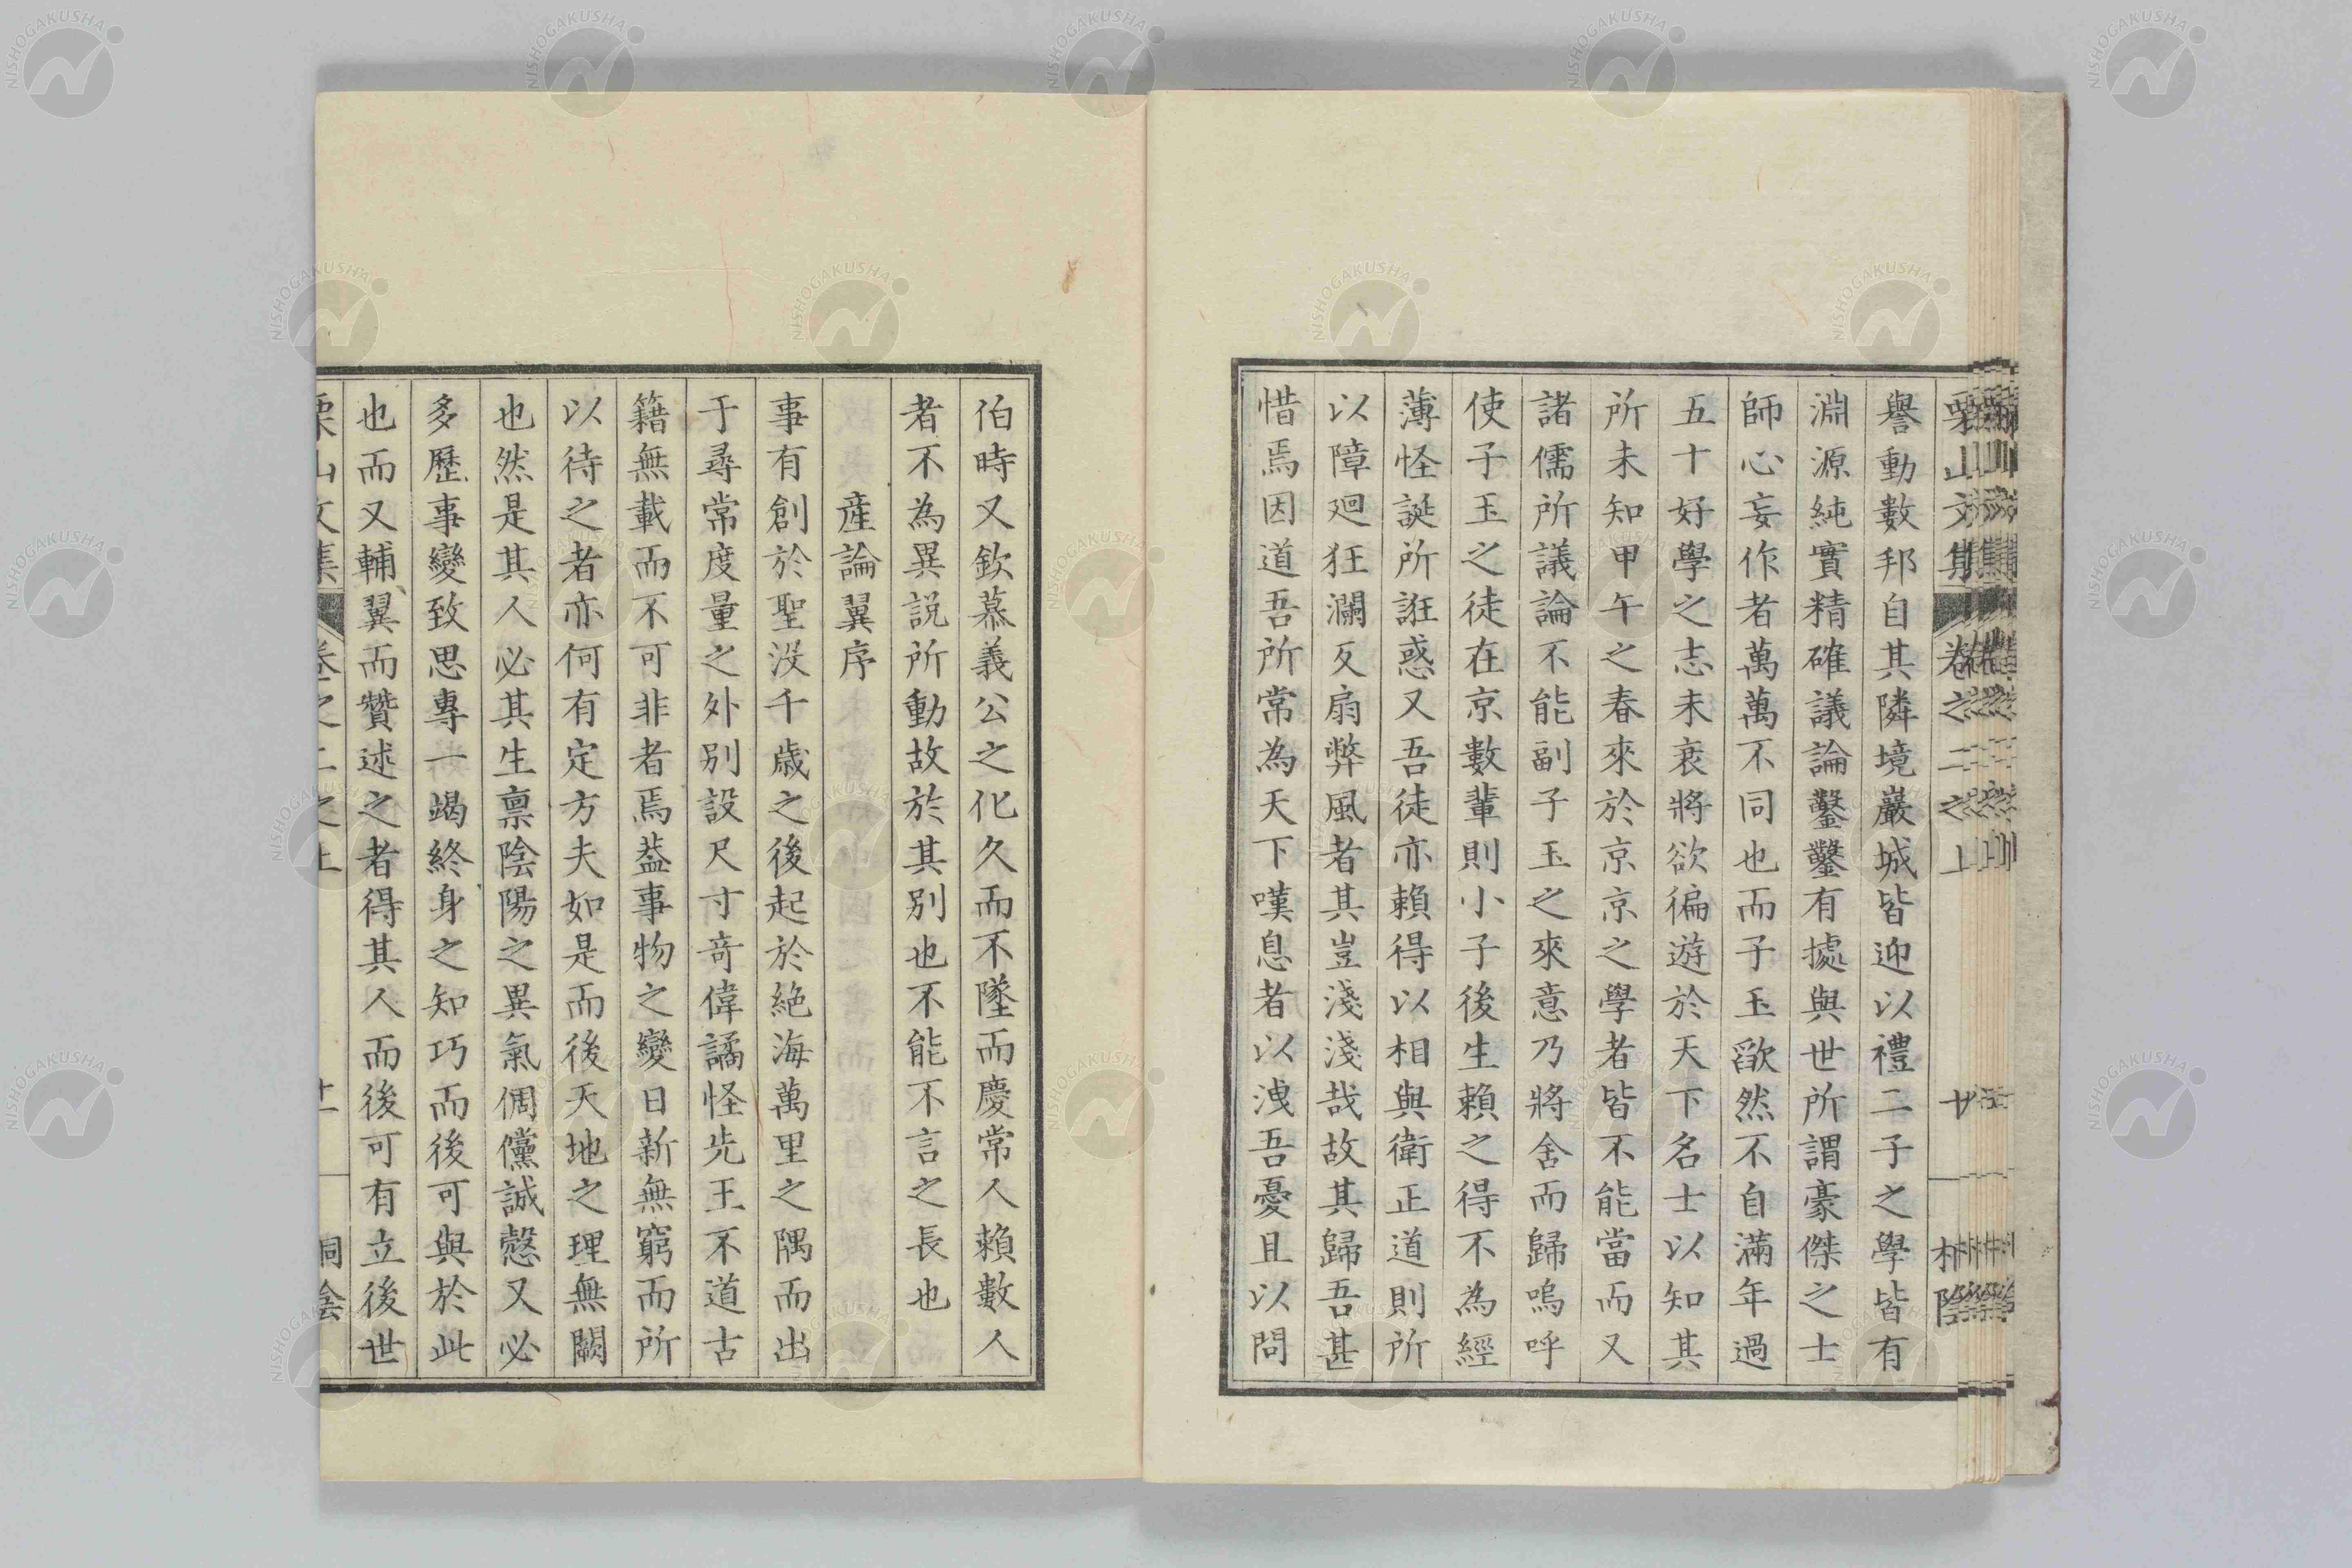 栗山文集 卷之二之上 廿 桐陰
譽動數邦自其隣境巖城皆迎以禮二子之學皆有
淵源純實精確議論鑿鑿有據與世所謂豪傑之士
師心妄作者萬萬不同也而子玉歠然不自滿年過
五十好學之志未衰將欲徧遊於天下名士以知其
所未知甲午之春來於京京之學者皆不能當而又
諸儒所議論不能副子玉之來意乃將舍而歸嗚呼
使子玉之徒在京數輩則小子後生賴之得不為經
薄怪誕所誑惑又吾徒亦賴得以相與衛正道則所
以障廻狂瀾反扇弊風者其豈淺淺哉故其歸吾甚
惜焉因道吾所常為天下嘆息者以洩吾憂且以問
伯時又欽慕義公之化久而不墜而慶常人賴數人
者不為異說所動故於其別也不能不言之長也
產論翼序
事有創於聖沒千歲之後起於絕海萬里之隅而出
于尋常度量之外別設尺寸奇偉譎怪先王不道古
籍無載而不可非者焉葢事物之變日新無窮而所
以待之者亦何有定方夫如是而後天地之理無闕
也然是其人必其生稟陰陽之異氣倜儻誠慤又必
多歷事變致思專一竭終身之知巧而後可與於此
也而又輔翼而贊述之者得其人而後可有立後世
栗山文集 卷之二之上 廿一 桐陰
NISHOGAKUSHA